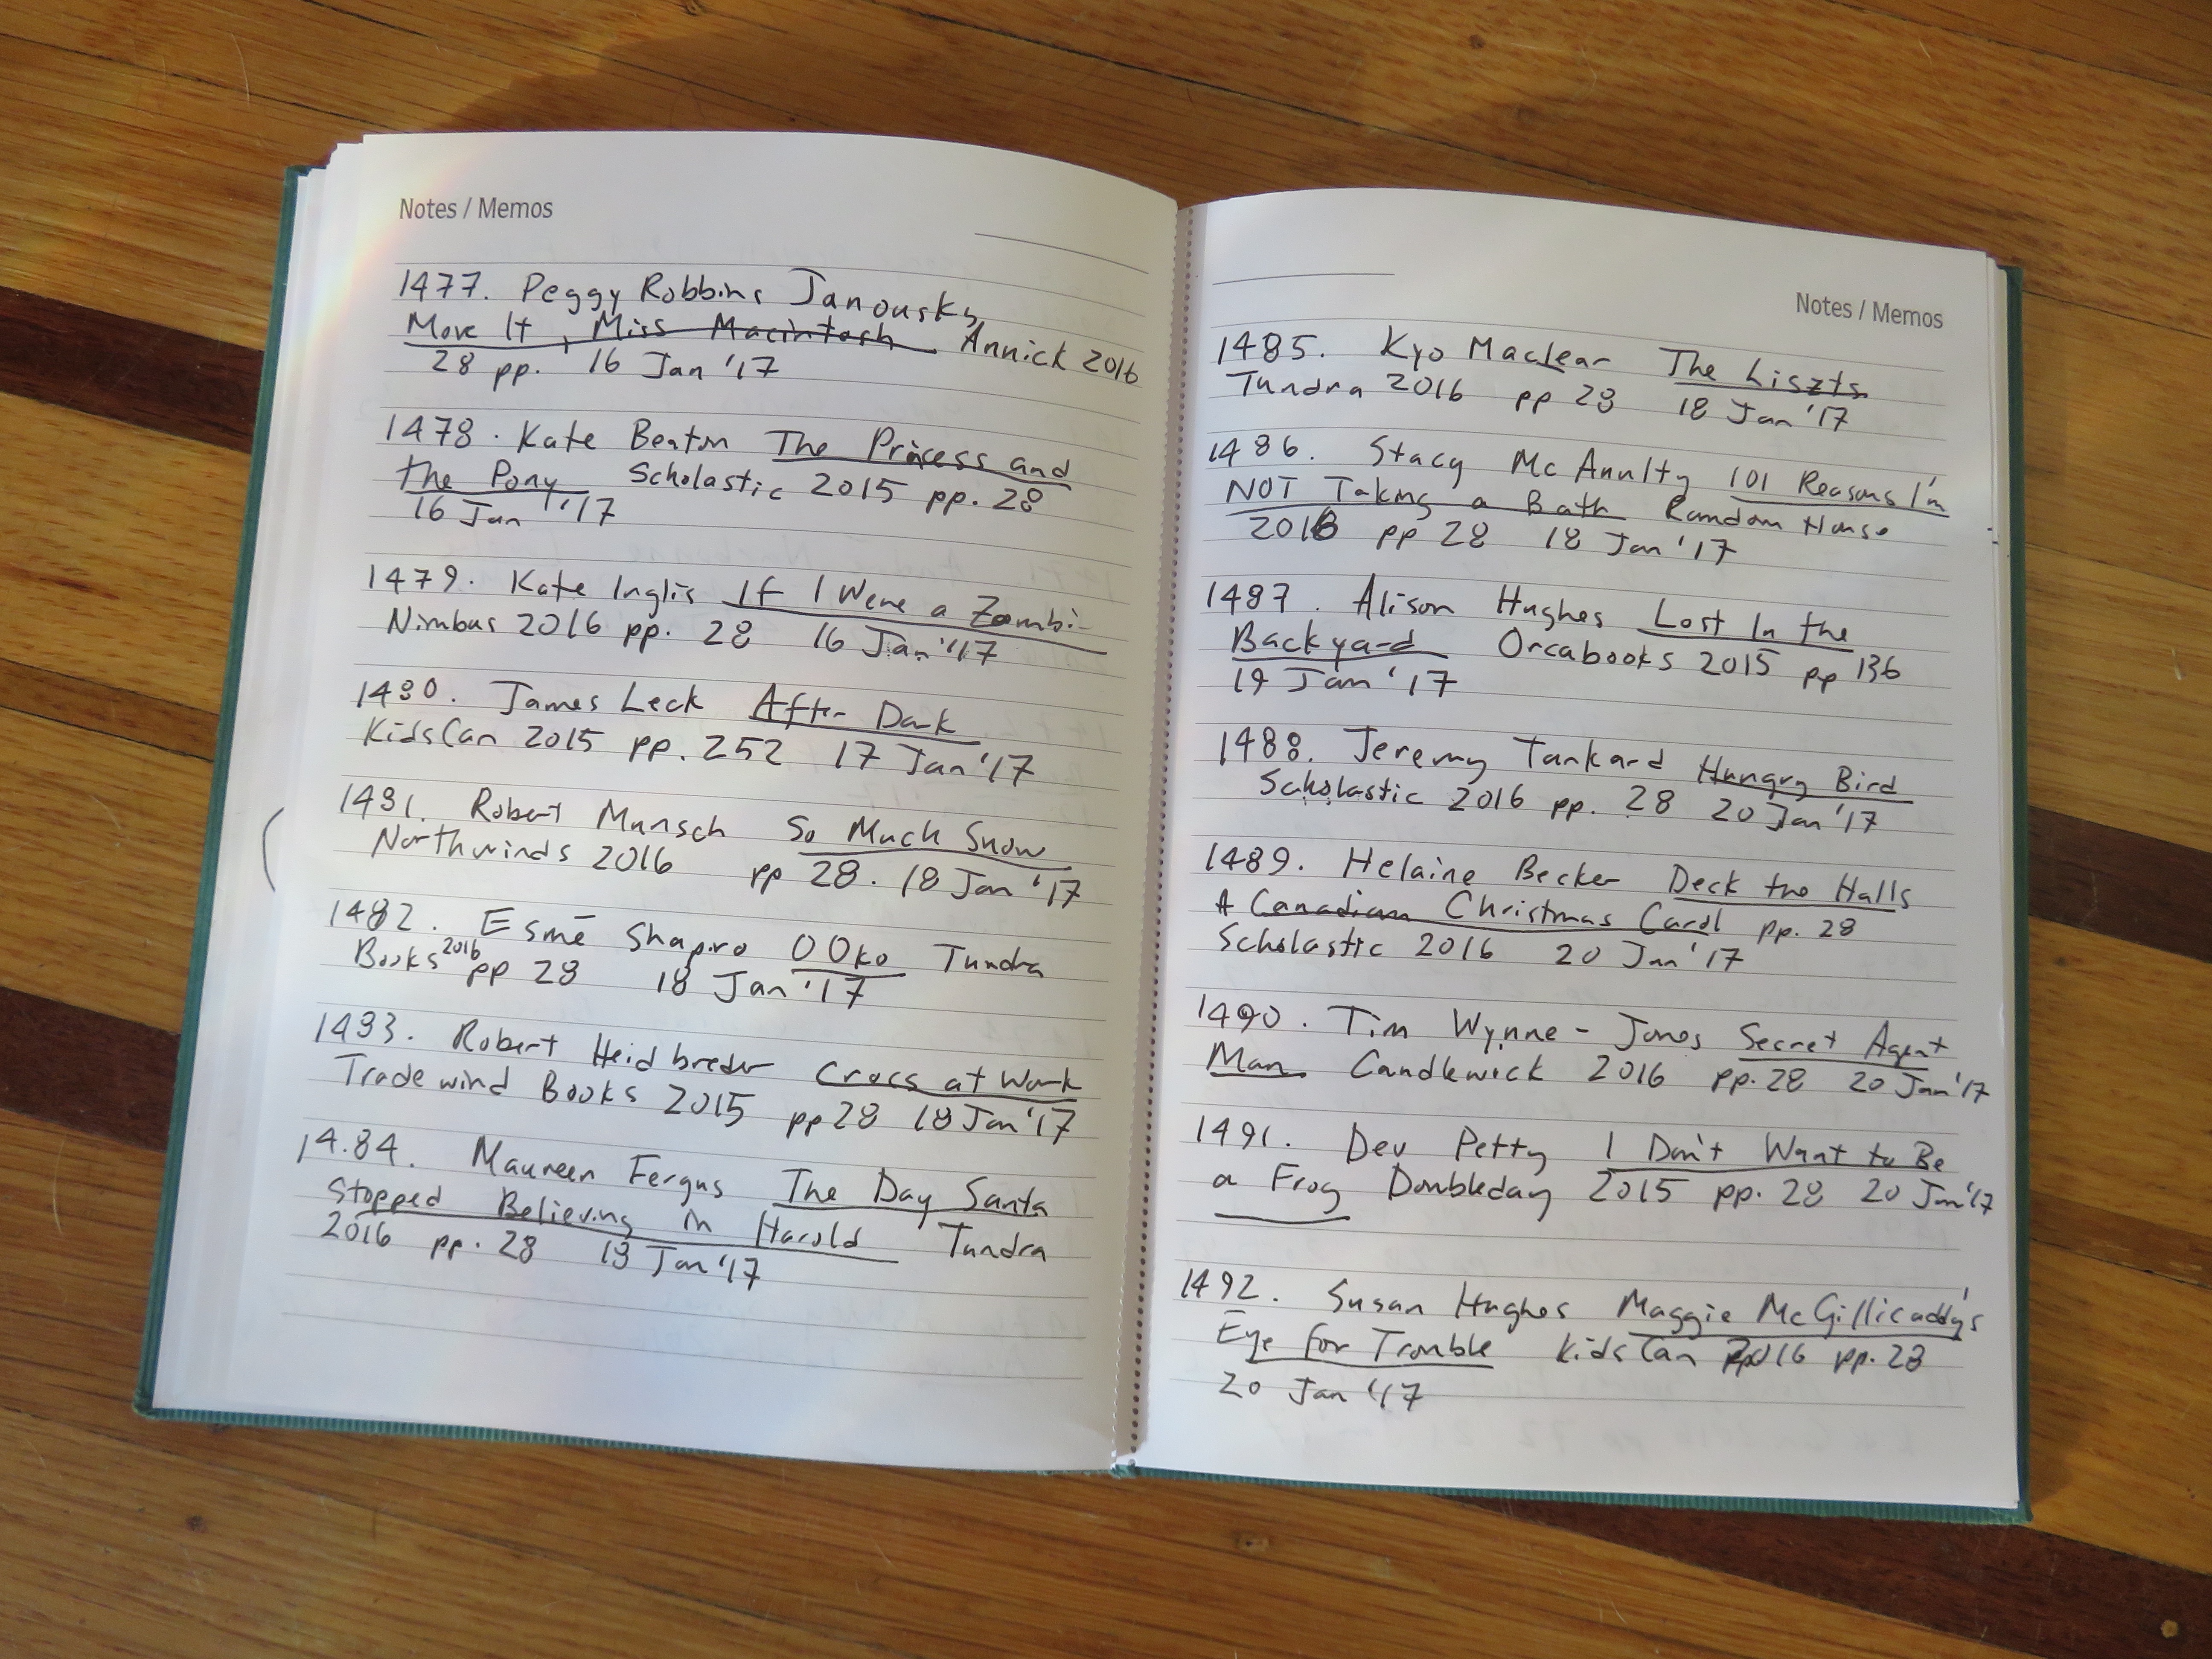 Notes / Memos
1477. Peggy Robbins Janousky
Move It, Miss Macintosh Annick 2016
28 pp. 16 Jan '17
1478. Kate Beaton The Princess and
the Pony Scholastic 2015 pp. 28
16 Jan '17
1479. Kate Inglis If I Were a Zombie
Nimbus 2016 pp. 28 16 Jan '17
1480. James Leck After Dark
KidsCan 2015 pp. 252 17 Jan '17
1481. Robert Munsch So Much Snow
Northwinds 2016 pp 28. 18 Jan '17
1482. Esmē Shapiro OOko Tundra
Books 2016 pp 28 18 Jan '17
1483. Robert Heidbreder Crocs at Work
Tradewind Books 2015 pp 28 18 Jan '17
14.84. Maureen Fergus The Day Santa
Stopped Believing in Harold Tundra
2016 pp. 28 18 Jan '17
Notes / Memos
1485. Kyo Maclear The Liszts
Tundra 2016 pp 28 18 Jan '17
1486. Stacy McAnulty 101 Reasons I'm
NOT Taking a Bath Random House
2016 pp 28 18 Jan '17
1487. Alison Hughes Lost In the
Backyard Orcabooks 2015 pp 136
19 Jan '17
1488. Jeremy Tankard Hungry Bird
Scholastic 2016 pp. 28 20 Jan '17
1489. Helaine Becker Deck the Halls
A Canadian Christmas Carol pp. 28
Scholastic 2016 20 Jan '17
1490. Tim Wynne-Jones Secret Agent
Man Candlewick 2016 pp. 28 20 Jan '17
1491. Dev Petty I Don't Want to Be
a Frog Doubleday 2015 pp. 28 20 Jan '17
1492. Susan Hughes Maggie McGillicaddy's
Eye for Trouble KidsCan 2016 pp. 28
20 Jan '17